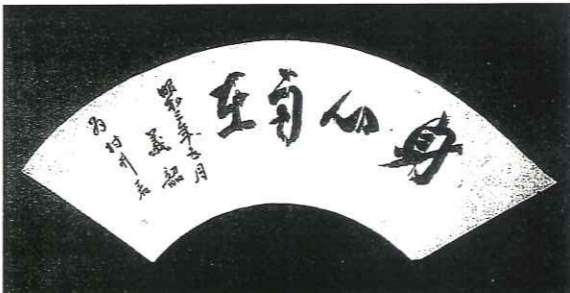 身心自在
昭和三年五月
義韶
為村井君